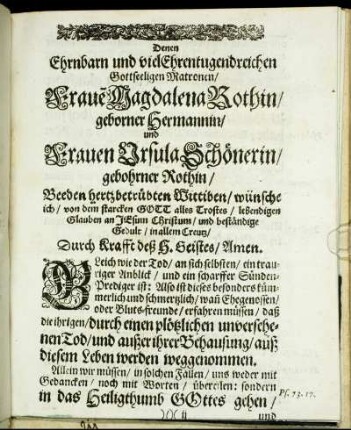 Denen
Ehrnbarn und viel Ehrentugendreichen
Gottseeligen Matronen/
Frauē Magdalena Rothin/
geborner Hermannin/
und
Frauen Ursula Schönerin/
gebohrner Rothin/
Beeden hertzbetrübten Wittiben/ wünsche
ich/ von dem starcken GOTT alles Trostes/ lebendigen
Glauben an JEsum Christum/ und beständige
Gedult/ in allem Creutz/
Durch Krafft deß H. Geistes/ Amen.
GLeich wie der Tod/ an sich selbsten/ ein trau-
riger Anblick/ und ein scharffer Sünden-
Prediger ist: Also ist dieses besonders küm-
merlich und schmertzlich/ wañ Ehegenossen/
oder Bluts-freunde/ erfahren müssen/ daß
die ihrigen/ durch einen plötzlichen unversehe-
nen Tod/ und ausser ihrer Behausung/ auß
diesem Leben werden weggenommen.
Allein wir müssen/ in solchen Fällen/ uns weder mit
Gedancken/ noch mit Worten/ übereilen: sondern
in das Heiligthumb GOttes gehen/
Ps. 73. 17.
)( ij
und